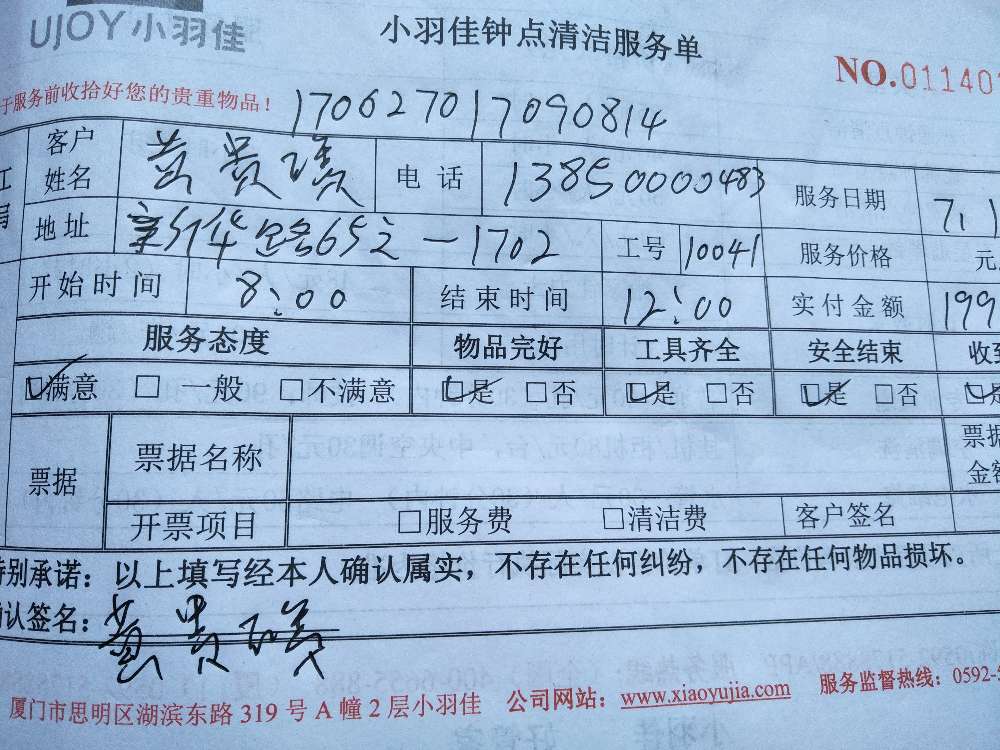 UJOY小羽佳
小羽佳钟点清洁服务单
NO.01140
于服务前收拾好您的贵重物品！
17062701709 0814
客户姓名 黄贵 电话 13850000483 服务日期 7.1
地址 新华路65之一1702 工号 10041 服务价格 元
开始时间 8:00 结束时间 12:00 实付金额 199
服务态度 物品完好 工具齐全 安全结束 收到
☑满意 □一般 □不满意 ☑是 □否 ☑是 □否 ☑是 □否 ☑是
票据 票据名称 票据金额
开票项目 □服务费 □清洁费 客户签名
特别承诺：以上填写经本人确认属实，不存在任何纠纷，不存在任何物品损坏。
确认签名：黄贵
厦门市思明区湖滨东路 319 号 A 幢 2 层小羽佳 公司网站：www.xiaoyujia.com 服务监督热线：0592-